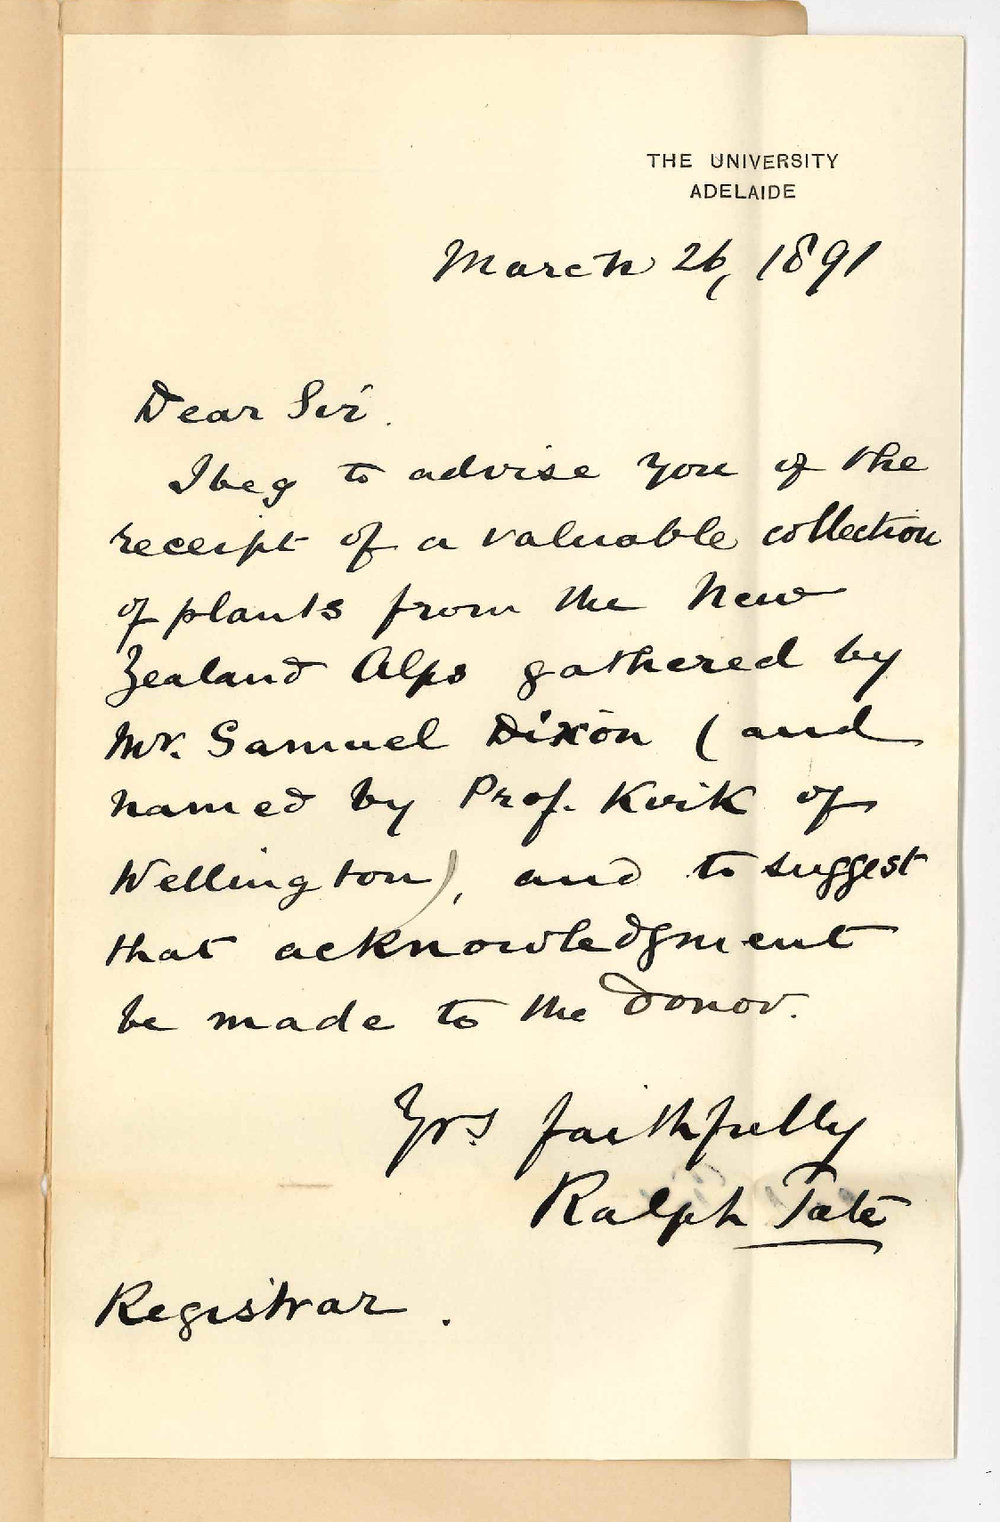 THE UNIVERSITY
ADELAIDE
March 26, 1891
Dear Sir.
I beg to advise you of the
receipt of a valuable collection
of plants from the New
Zealand Alps gathered by
Mr. Samuel Dixon (and
named by Prof. Kirk of
Wellington), and to suggest
that acknowledgment
be made to the donor.
Yrs faithfully
Ralph Tate
Registrar.